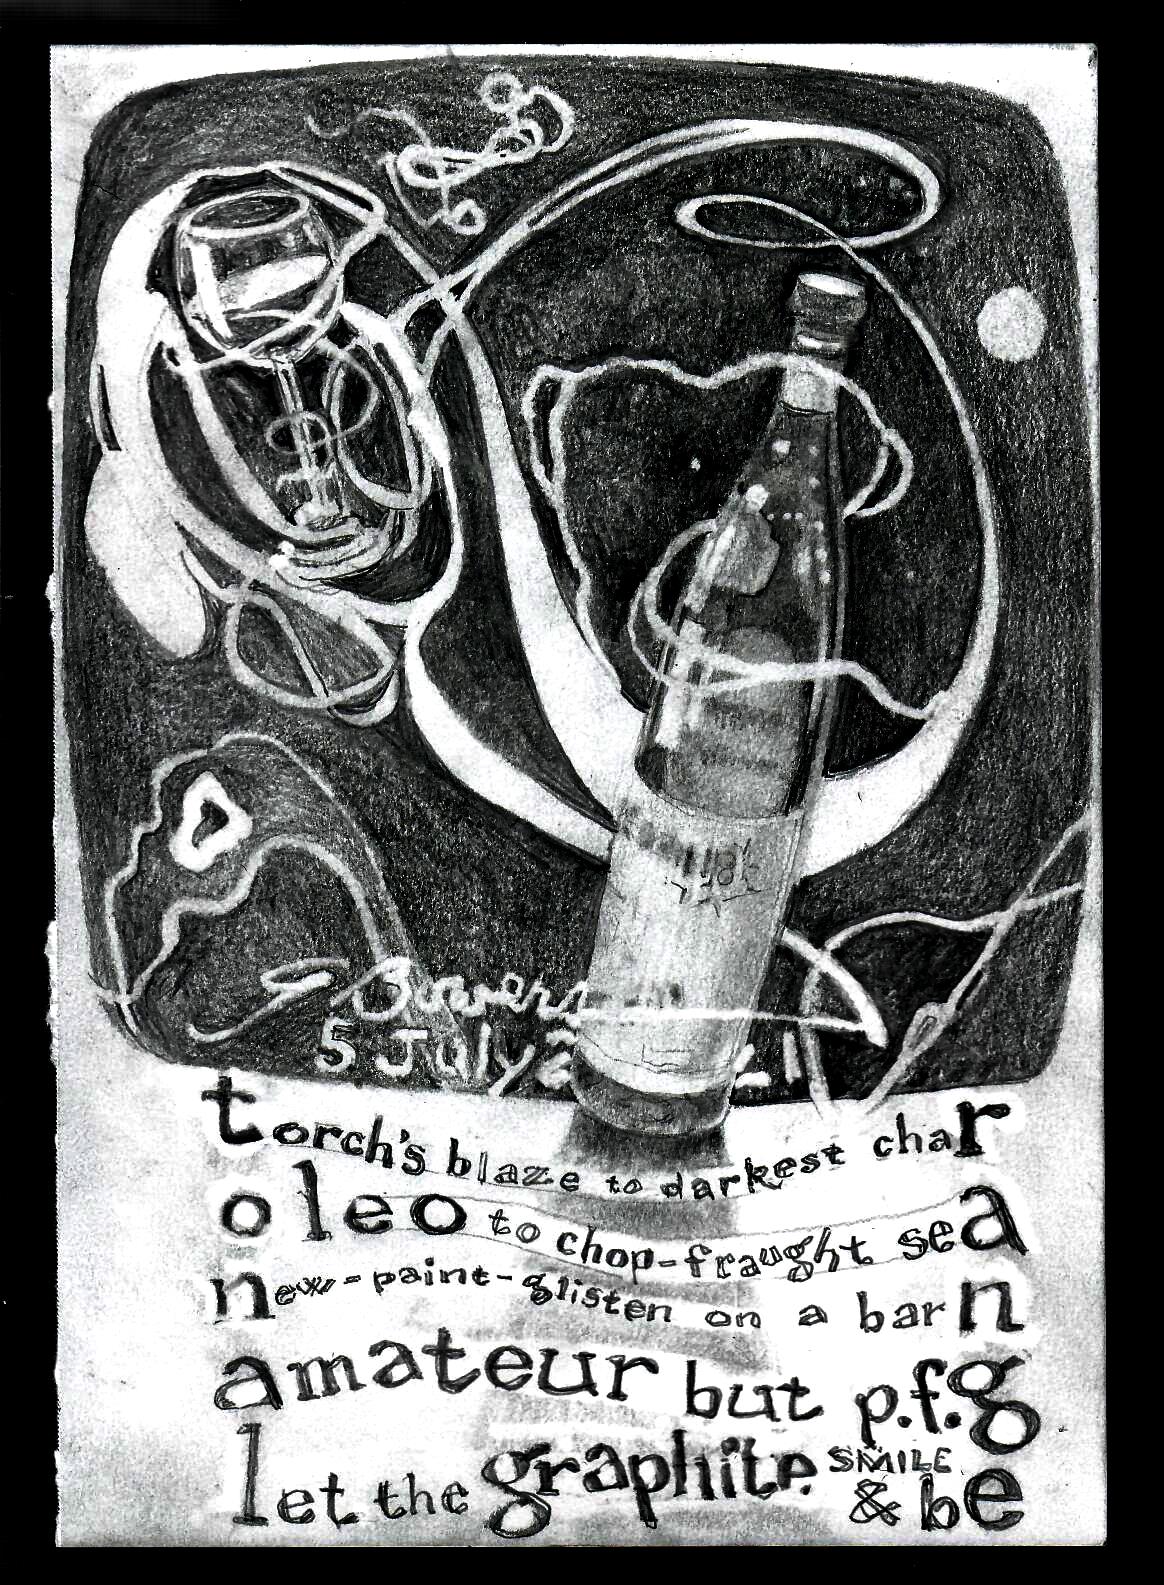 S Bowers
5 July 2
torch's blaze to darkest char
oleo to chop-fraught sea
new-paint-glisten on a barn
amateur but p.f.g
let the graphite SMILE
& be